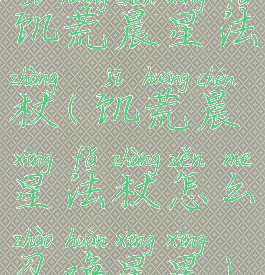 饥荒晨星法
zhàng jī huāng chén
杖(饥荒晨
xīng fǎ zhàng zěn me
星法杖怎么
zhào huàn xīng xīng
召唤星星)